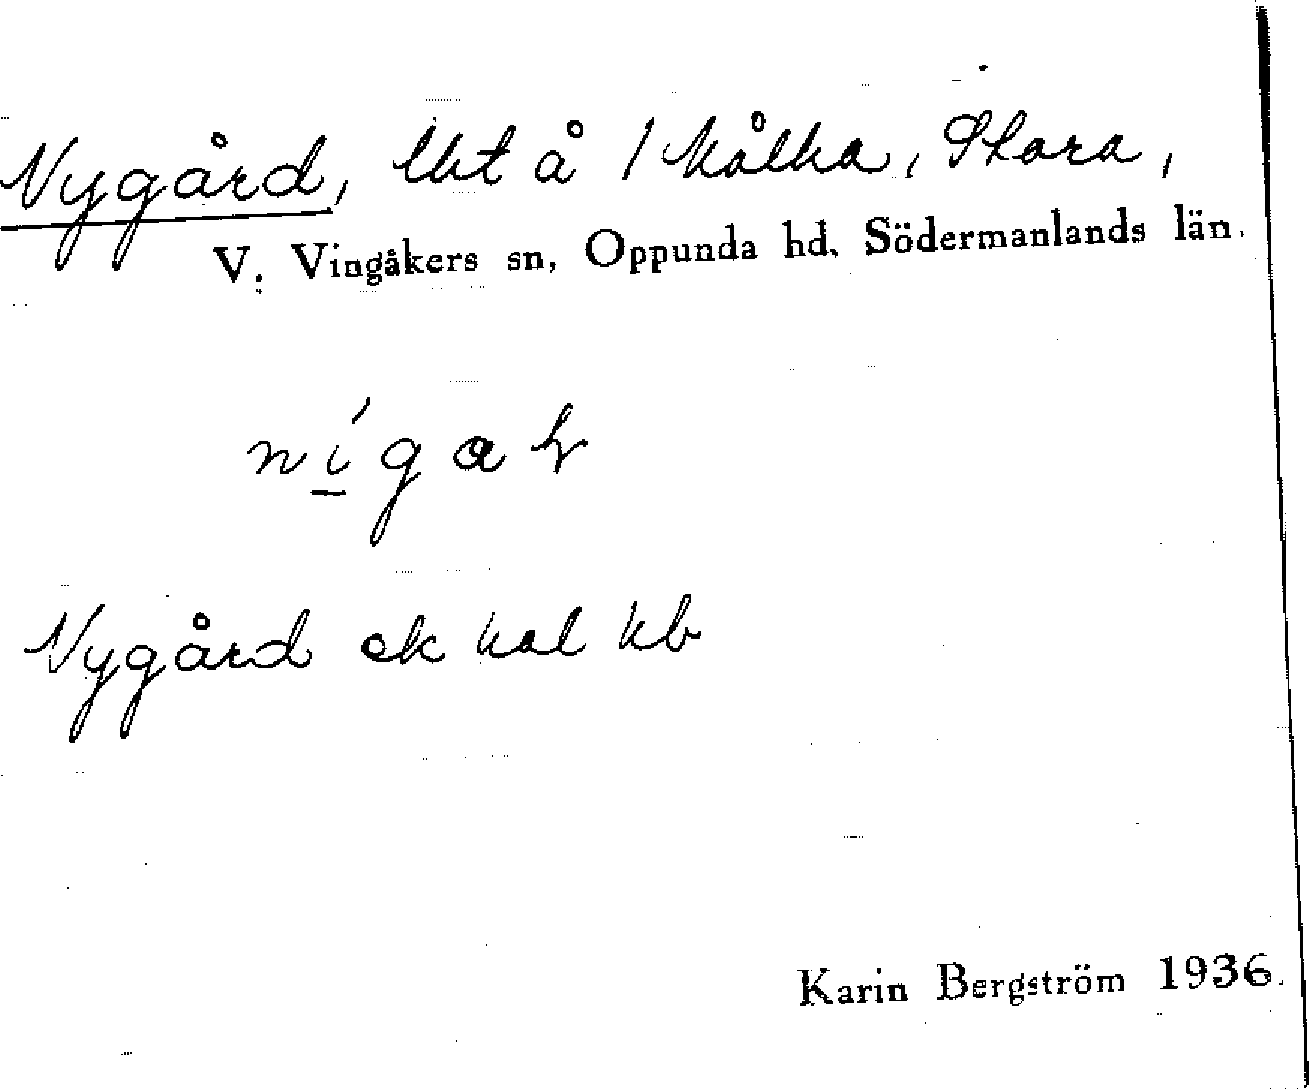 Nygård, lht å 1 Kålka, Stora,
V. Vingåkers sn, Oppunda hd. Södermanlands län.
nígar
Nygård ek kal kb
Karin Bergström 1936.